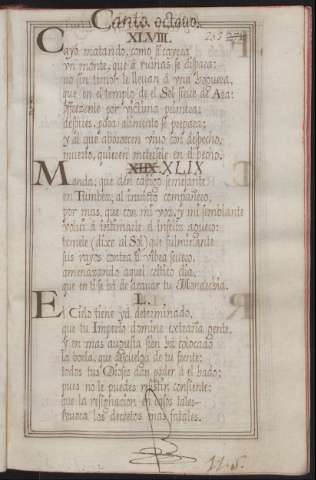 Canto. octauo.
267
XLVIII.
Cayó matando, como si cayera
vn monte, que à ruinas se dispara:
no sin temor le lleuan à vna hoguera,
que en el templo de el Sol sirue de Ara:
ofrecenle por victima primera:
despues, para alimento se prepara;
y al que aborrecen viuo con despecho,
muerto, quieren meterle en el pecho.
XLIX
Manda, que den castigo semejante
en Tumbez, al inuicto compañero,
por mas, que con mi voz, y mi semblante
voluì à intimarle el infeliz aguero:
temele (dixe al Sol) que fulminante
sus rayos contra ti vibra seuero,
amenaçando aquel critico dia,
que en ti se hà de acauar tu Monarchia.
L.
El Cielo tiene yà determinado,
que tu Imperio domine extraña gente,
y en mas augusta sien hà colocado
la borla, que descuelga de tu frente:
todos tus Dioses dan poder à el hado;
pues no le puedes resistir, consiente:
que la resignacion en casos tales
reuoca los decretos mas fatales.